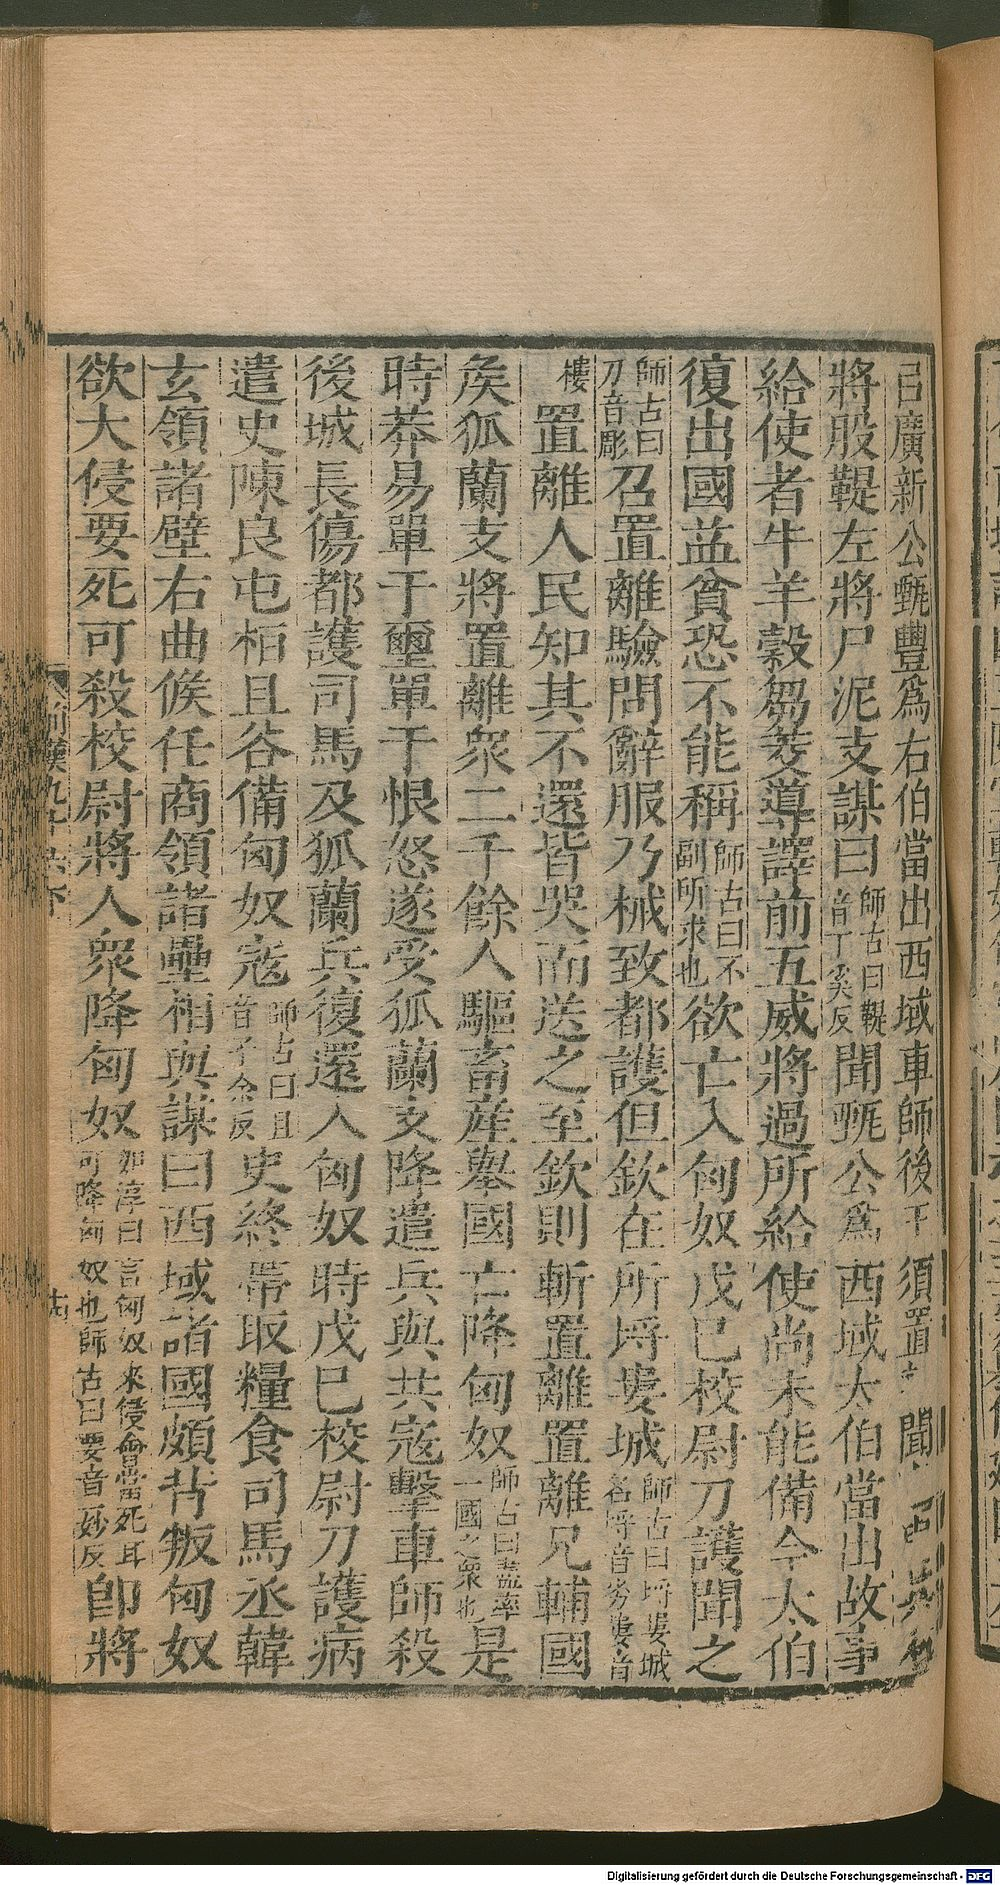 㠯廣新公甄豐爲右伯當出西域車師後王須置聞
將股鞮左將尸泥支謀曰師古曰鞮音丁奚反聞甄公爲西域太伯當出故事
給使者牛羊穀芻茭導譯前五威將過所給使尚未能備今太伯
復出國益貧恐不能稱師古曰不副所求也欲亡入匈奴戊巳校尉刀護聞之
師古曰刀音彫召置離驗問辭服乃械致都護但欽在所埒婁城師古曰埒婁城名埒音劣婁音
樓置離人民知其不還皆哭而送之至欽則斬置離置離兄輔國
矦狐蘭支將置離衆二千餘人驅畜産舉國亡降匈奴師古曰盡率一國之衆也是
時莽易單于璽單于恨怒遂受狐蘭支降遣兵與共寇擊車師殺
後城長傷都護司馬及狐蘭兵復還入匈奴時戊巳校尉刀護病
遣史陳良屯桓且谷備匈奴寇師古曰且音子余反史終帶取糧食司馬丞韓
玄領諸壁右曲候任商領諸壘相與謀曰西域諸國頗背叛匈奴
欲大侵要死可殺校尉將人衆降匈奴如淳曰言匈奴來侵會當死耳可降匈奴也師古曰要音妙反即將
前漢九十六下
十七
Digitalisierung gefördert durch die Deutsche Forschungsgemeinschaft - DFG